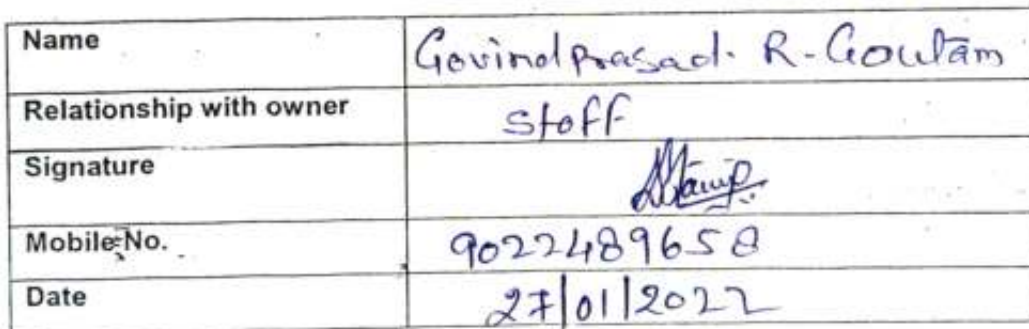 Name Govindprasad. R. Goutam
Relationship with owner Stoff
Signature
Mobile No. 9022489658
Date 27/01/2022